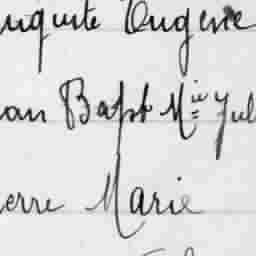 uguste Eugene
ean Bapt Mie Jul
erre Marie